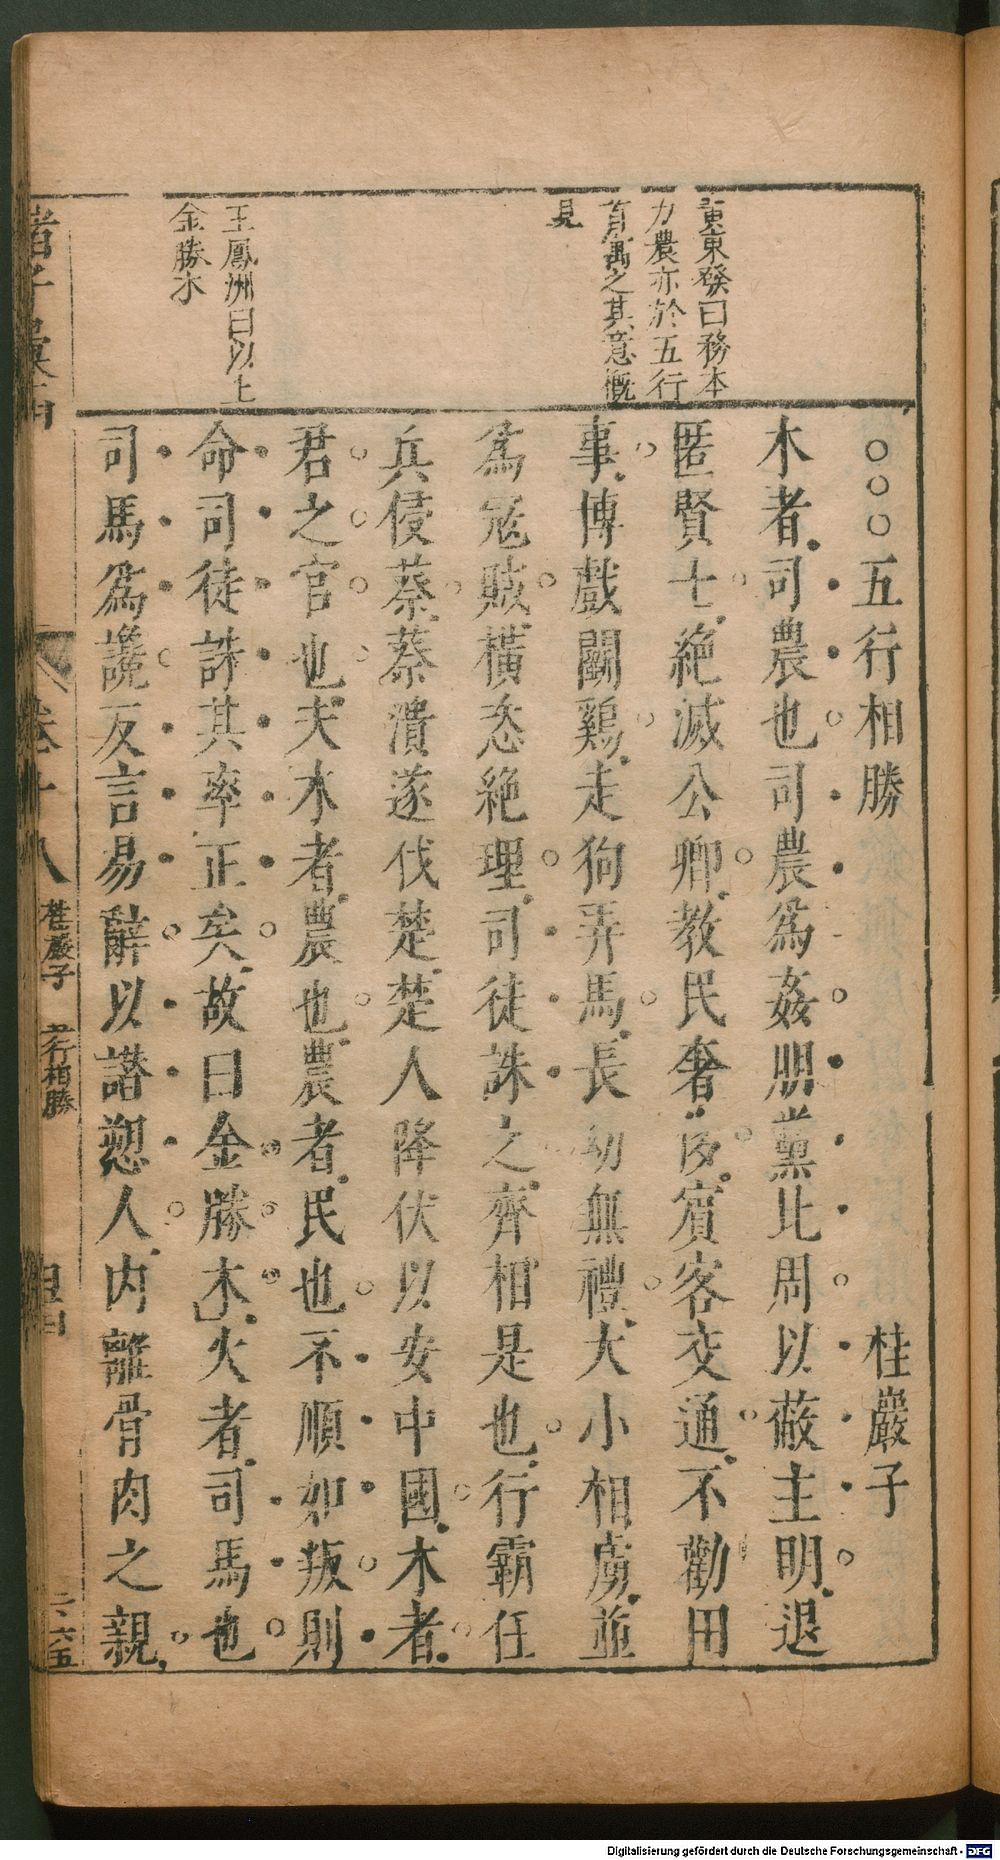 黃東發曰務本
力農亦於五行
有寓之其意概
見
王鳳洲曰以上
金勝木
○○○五行相勝 桂巖子
木者司農也司農爲姦朋黨比周以蔽主明退
匿賢士絕滅公卿教民奢侈賓客交通不勸田
事博戲鬭鷄走狗弄馬長幼無禮大小相虜並
爲寇賊橫恣絕理司徒誅之齊相是也行霸任
兵侵蔡蔡潰遂伐楚楚人降伏以安中國木者
君之官也夫木者農也農者民也不順如叛則
命司徒誅其率正矣故曰金勝木火者司馬也
司馬爲讒反言易辭以譖愬人內離骨肉之親
諸子彙函 卷十八 桂巖子 五行相勝 二六五
Digitalisierung gefördert durch die Deutsche Forschungsgemeinschaft - DFG